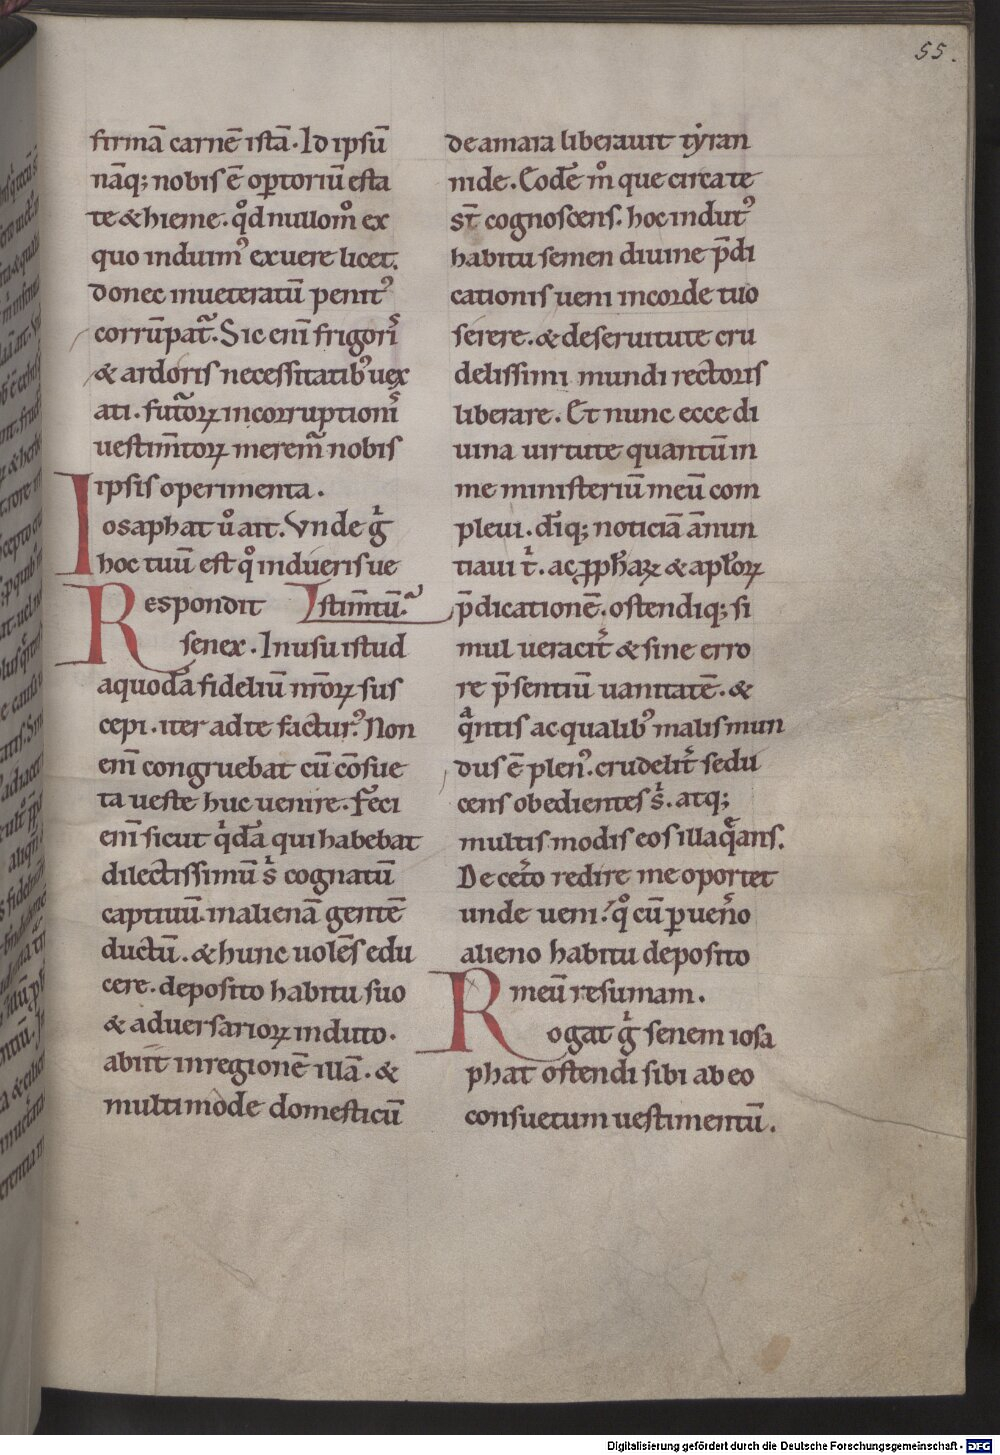 55.
firmā carnē istā. Id ipsū
nāq; nobis ē optoriū esta
te & hieme. qͦd nullomͦ ex
quo induimꝰ exuere licet.
donec inueteratū penitꝰ
corrūpatᷓ. Sic enī frigorīs
& ardoris necessitatibꝰ uex
ati. futᷓoꝝ incorruptionīs
uestim̄toꝝ meremᷓ nobis
ipsis operimenta.
Iosaphat uͦ ait. Vnde gͥ
hoc tuū est qͦ indueris ue
Respondit stim̄tū?
senex. In usu istud
a quodā fideliū nr̄oꝝ sus
cepi. iter ad te facturꝰ. Non
enī congruebat cū cōsue
ta ueste huc uenire. Feci
enī sicut qͥdā qui habebat
dilectissimū sͥ cognatū
captiuū in alienā gentē
ductū. & hunc uolēs edu
cere. deposito habitu suo
& aduersarioꝝ induto.
abiit̄ in regionē illā. &
multimode domesticū
de amara liberauit tẏran
nide. Eodē mͦ que circa te
st̄ cognoscens. hoc indutꝰ
habitu semen diuine p̄di
cationis ueni in corde tuo
serere. & de seruitute cru
delissimi mundi rectoris
liberare. Et nunc ecce di
uina uirtute quantū in
me ministeriū meū com
pleui. dīq; noticiā ānun
tiaui tͥ. ac ꝓpħaꝝ & apl̄oꝝ
p̄dicationē. ostendiq; si
mul ueracitᷣ & sine erro
re p̄sentiū uanitatē. &
qᷓntis ac qualibꝰ malis mun
dus ē plenꝰ. crudelitᷣ sedu
cens obedientes sͥ. atq;
multis modis eos illaqͤans.
De cetᷣo redire me oportet
unde ueni. qͦ cū ꝑuenᷣo
alieno habitu deposito
meū resumam.
Rogat gͥ senem iosa
phat ostendi sibi ab eo
consuetum uestimentū.
Digitalisierung gefördert durch die Deutsche Forschungsgemeinschaft - DFG